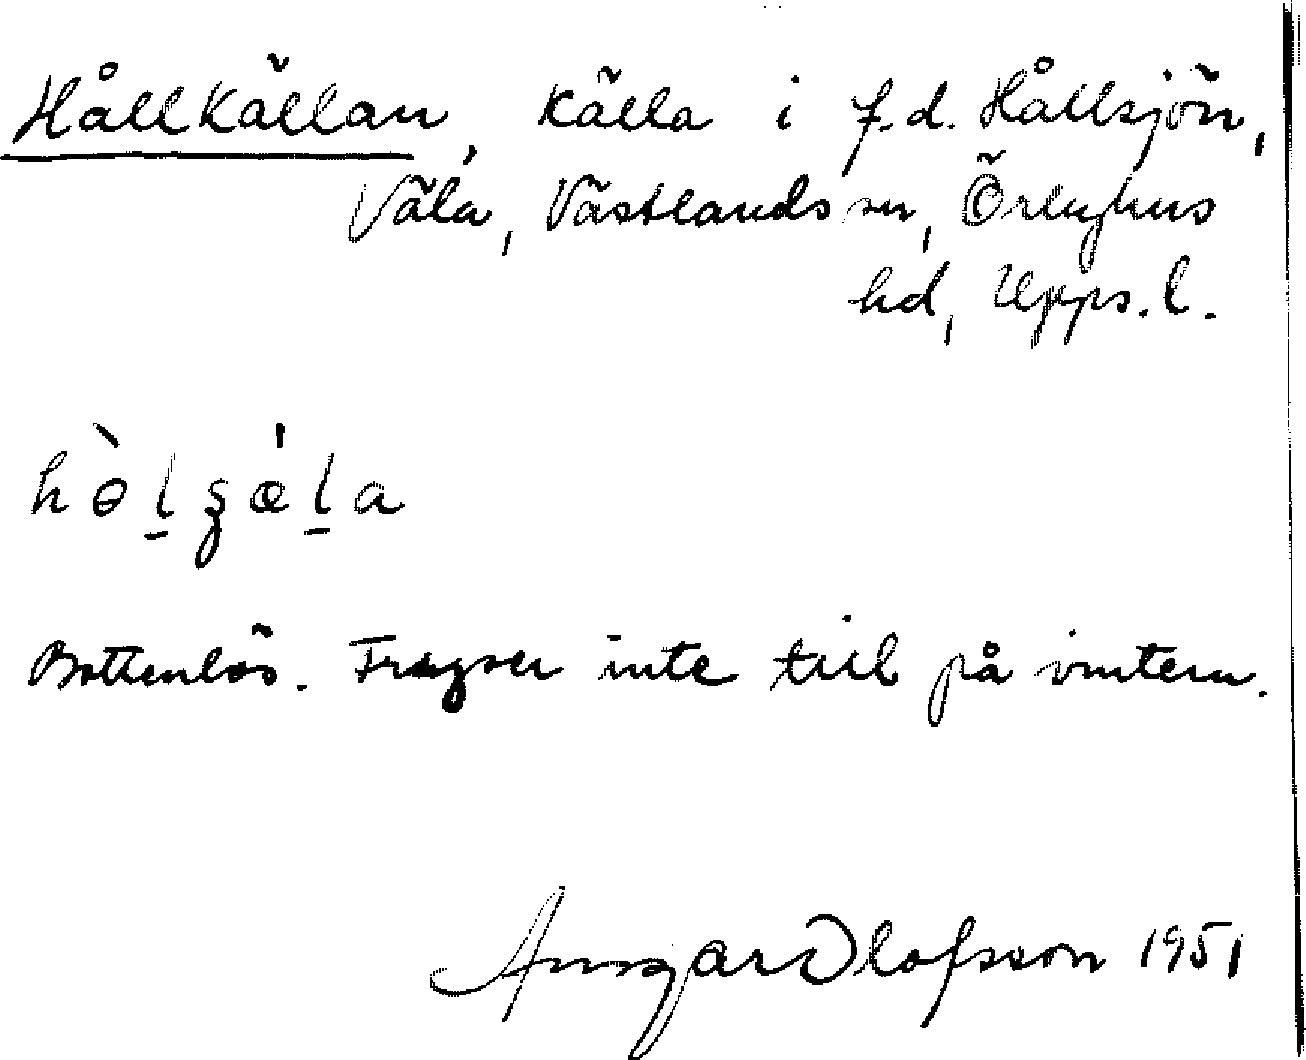 Hållkällan, källa i f.d. Hållsjön,
Väla, Västlands sn, Örbyhus
hd, Upps.l.
Bottenlös. Fryser inte till på vintern.
Ansgar Olofsson 1951